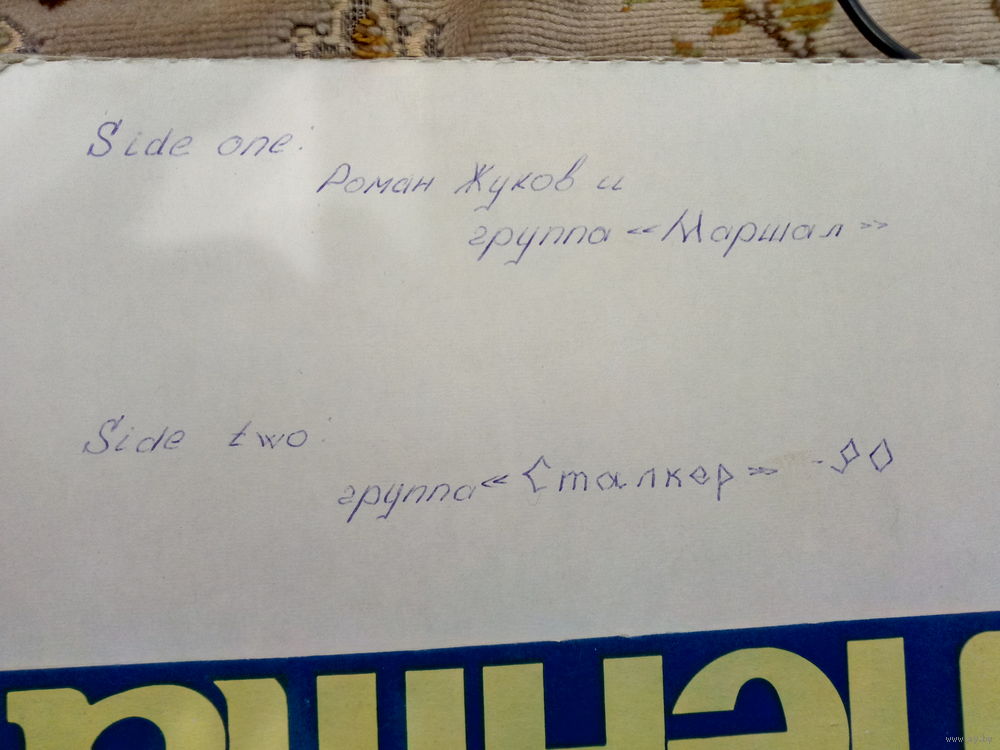 Side one:
Роман Жуков и
группа «Маршал»
Side two:
группа «Сталкер» -90